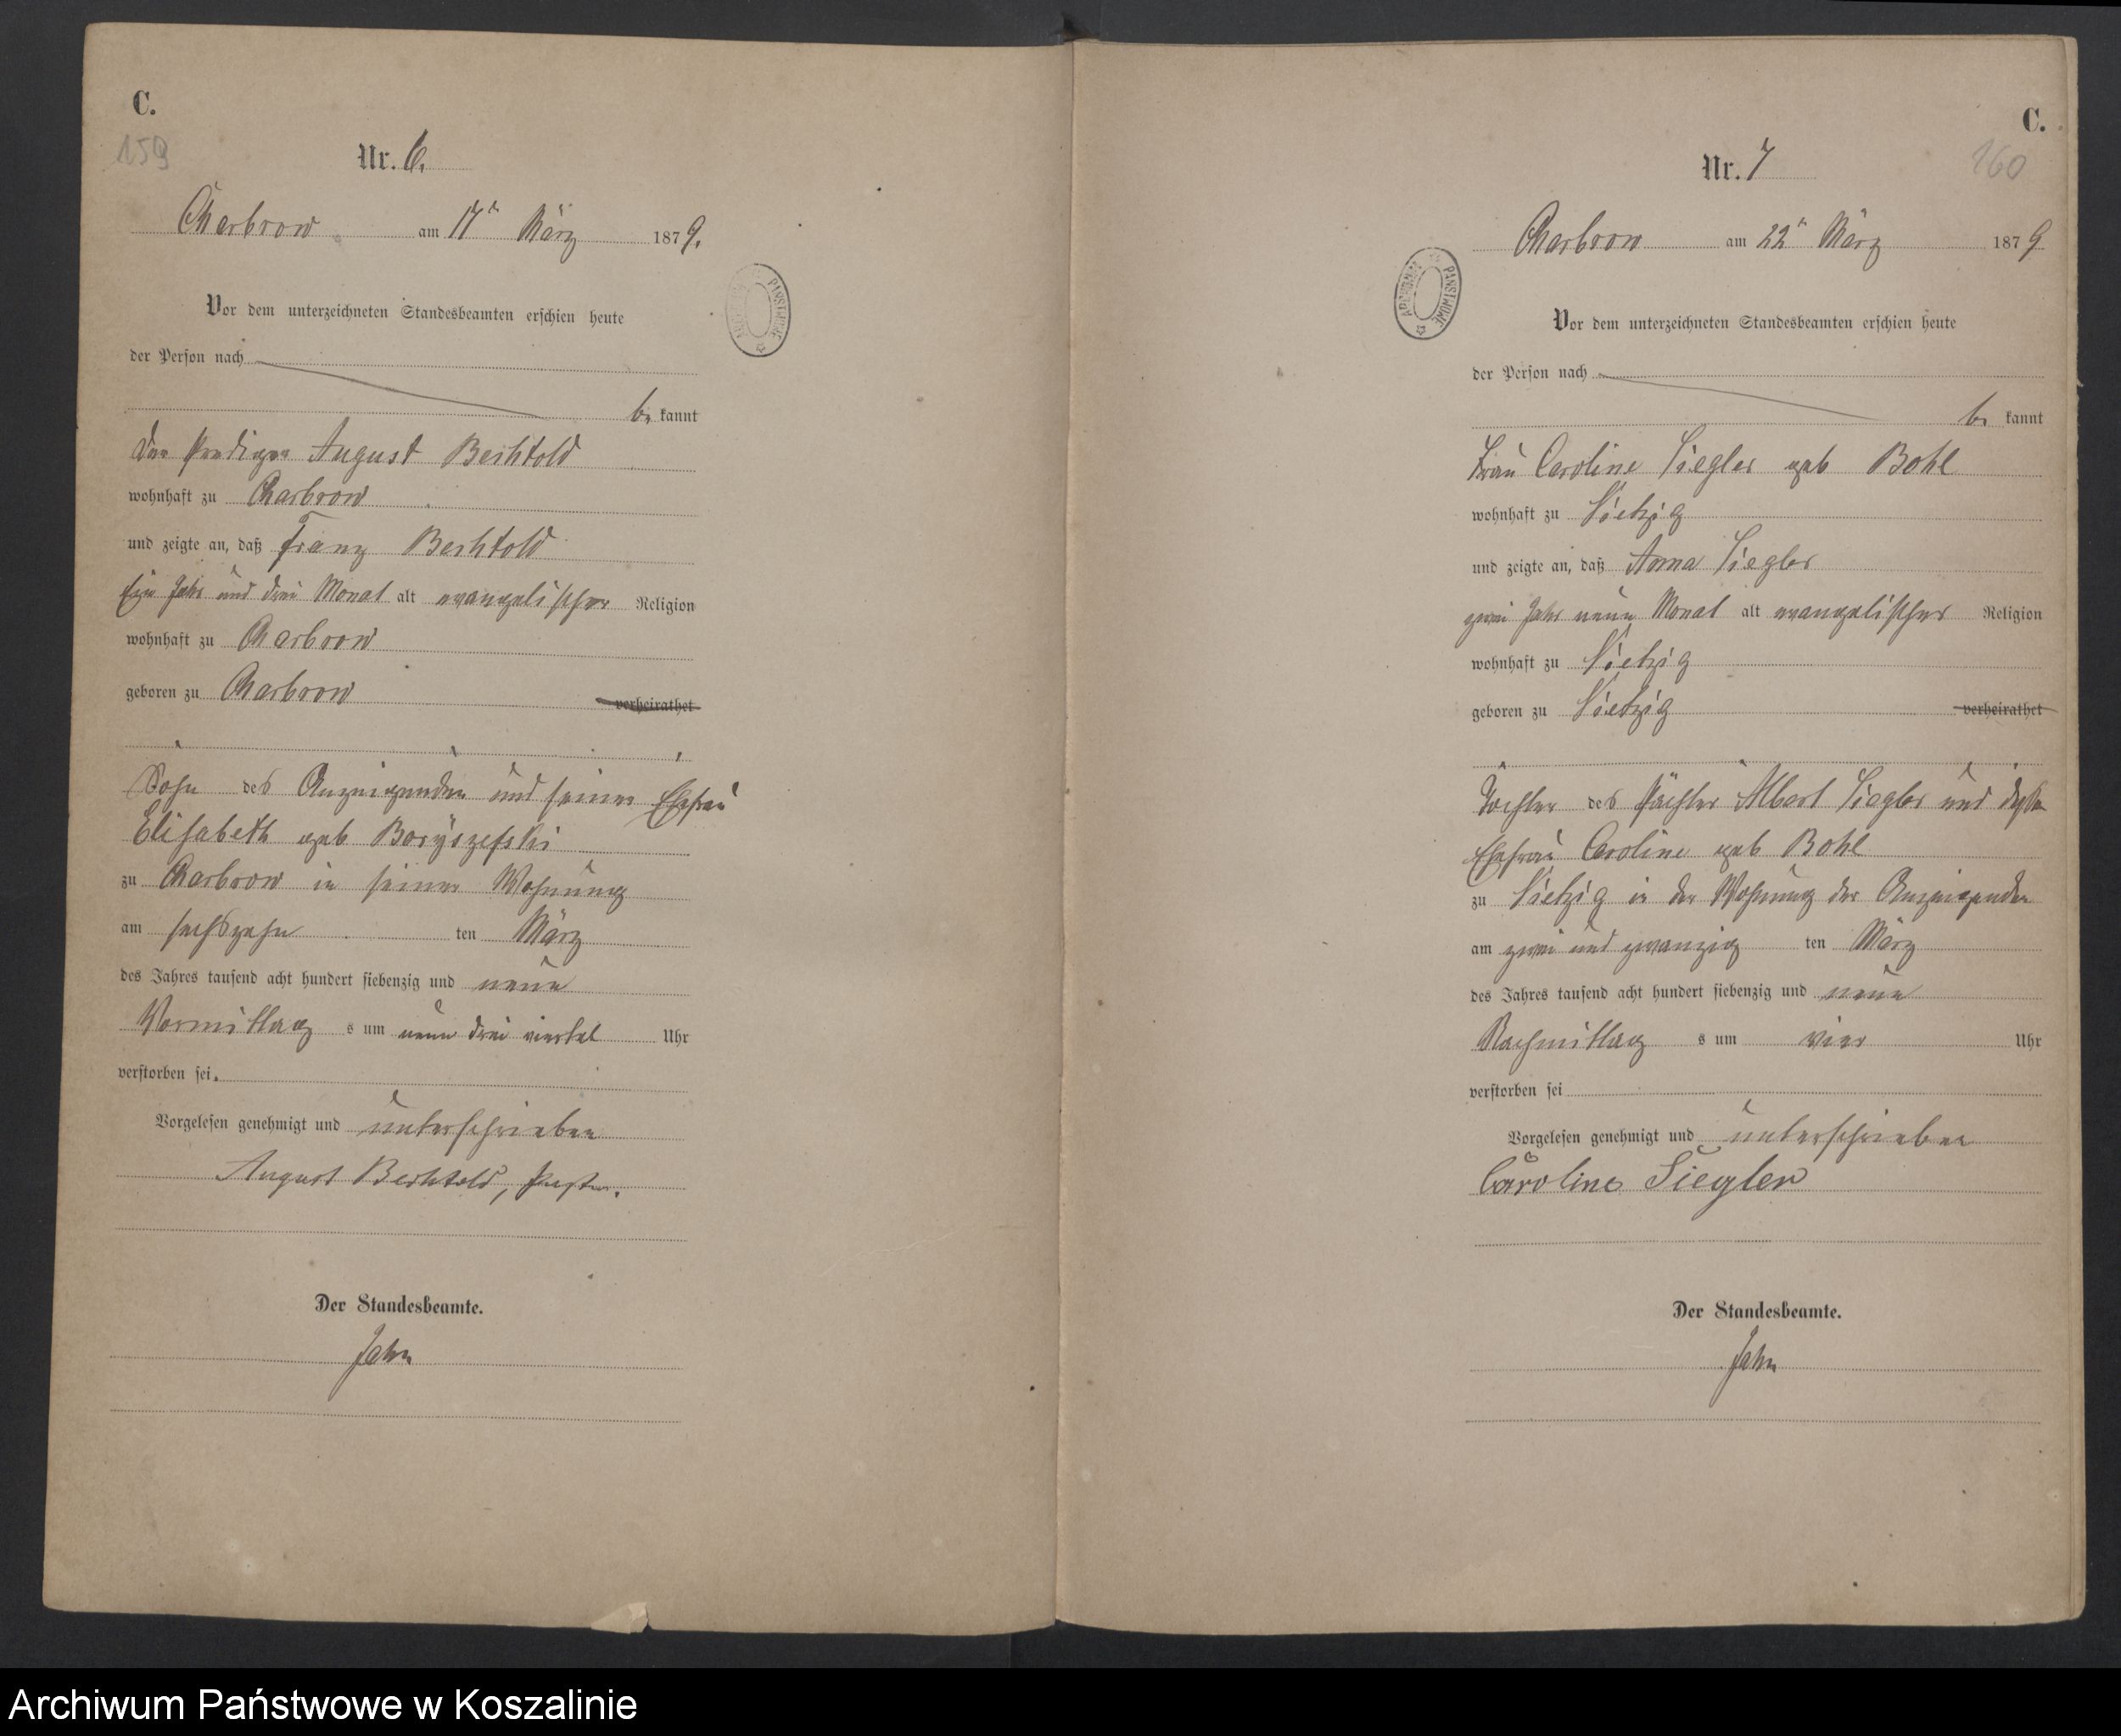 C.
159
Nr. 6.
Charbrow am 17ᵗ März 1879.
Vor dem unterzeichneten Standesbeamten erschien heute
der Person nach
be kannt
der Prediger August Berhtold
wohnhaft zu Charbrow
und zeigte an, daß Franz Berhtold
Ein Jahr und drei Monat alt evangelischer Religion
wohnhaft zu Charbrow
geboren zu Charbrow verheirathet
Sohn des Anzeigenden und seiner Ehefrau
Elisabeth geb Boryszefski
zu Charbrow in seiner Wohnung
am sechszehn ten März
des Jahres tausend acht hundert siebenzig und neun
Vormittag s um neun drei viertel Uhr
verstorben sei.
Vorgelesen genehmigt und unterschrieben
August Berhtold, Pastor.
Der Standesbeamte.
Jahn
C.
160
Nr. 7
Charbrow am 22ᵗ März 1879
ARCHIWUM PAŃSTWOWE
Vor dem unterzeichneten Standesbeamten erschien heute
der Person nach
be kannt
Frau Caroline Siegler geb Bohl
wohnhaft zu Vietzig
und zeigte an, daß Anna Siegler
zwei Jahr neun Monat alt evangelischer Religion
wohnhaft zu Vietzig
geboren zu Vietzig verheirathet
Tochter des Pächter Albert Siegler und dessen
Ehefrau Caroline geb Bohl
zu Vietzig in der Wohnung der Anzeigenden
am zwei und zwanzig ten März
des Jahres tausend acht hundert siebenzig und neun
Nachmittag s um vier Uhr
verstorben sei
Vorgelesen genehmigt und unterschrieben
Caroline Siegler
Der Standesbeamte.
Jahn
Archiwum Państwowe w Koszalinie